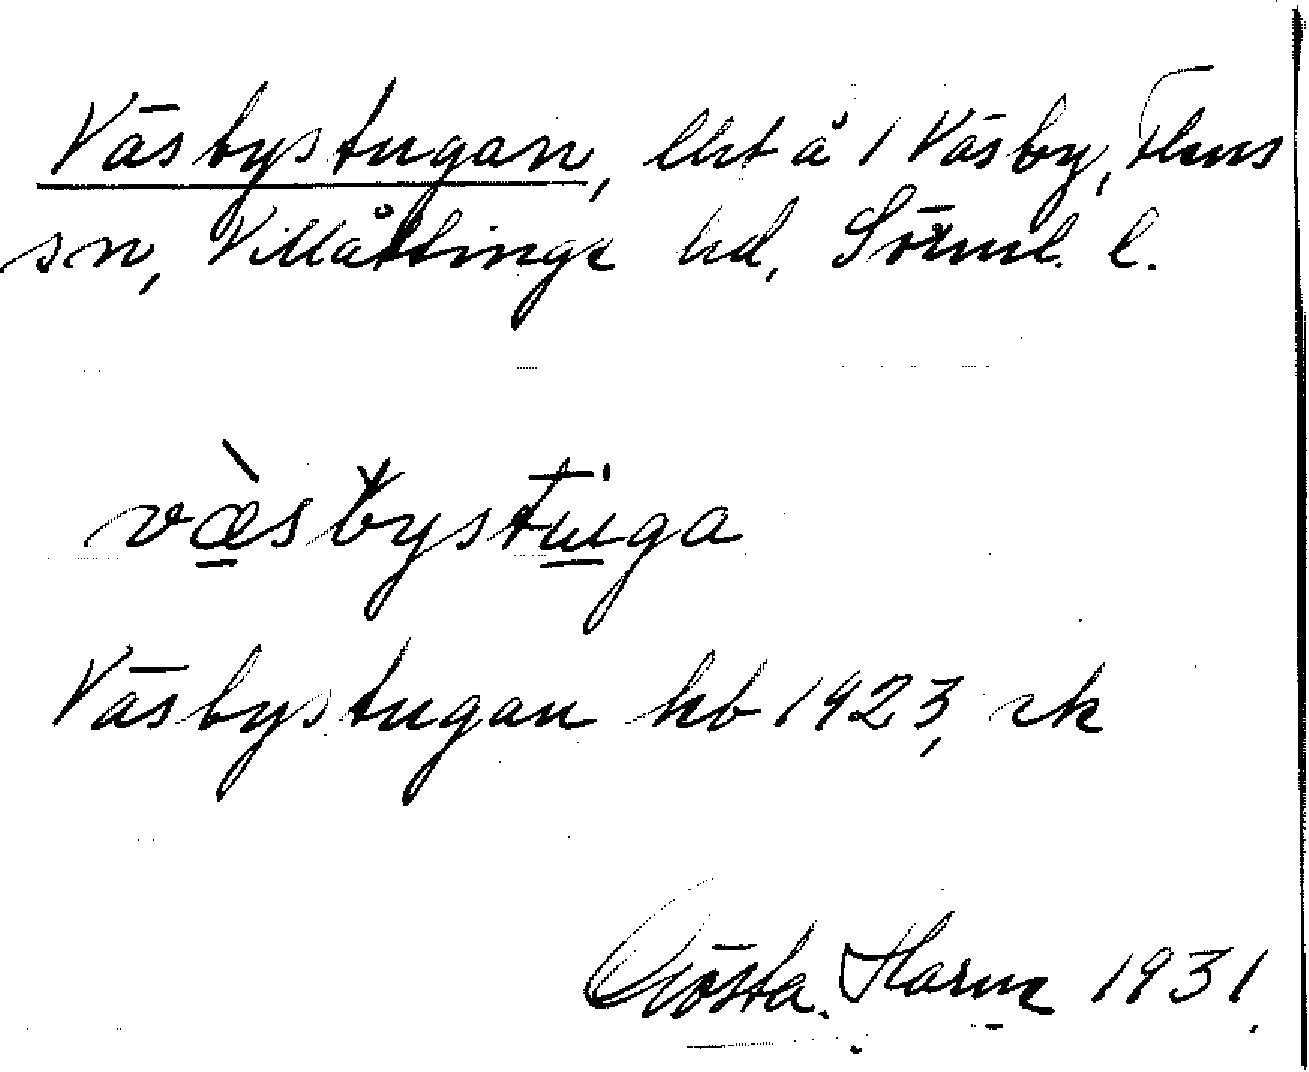 Väsbystugan, lht å 1 Väsby, Flens
sn, Villåttinge hd, Sörml. l.
væ̀sbystu̇ga
Väsbystugan hb 1923, rk
Gösta Harne 1931.